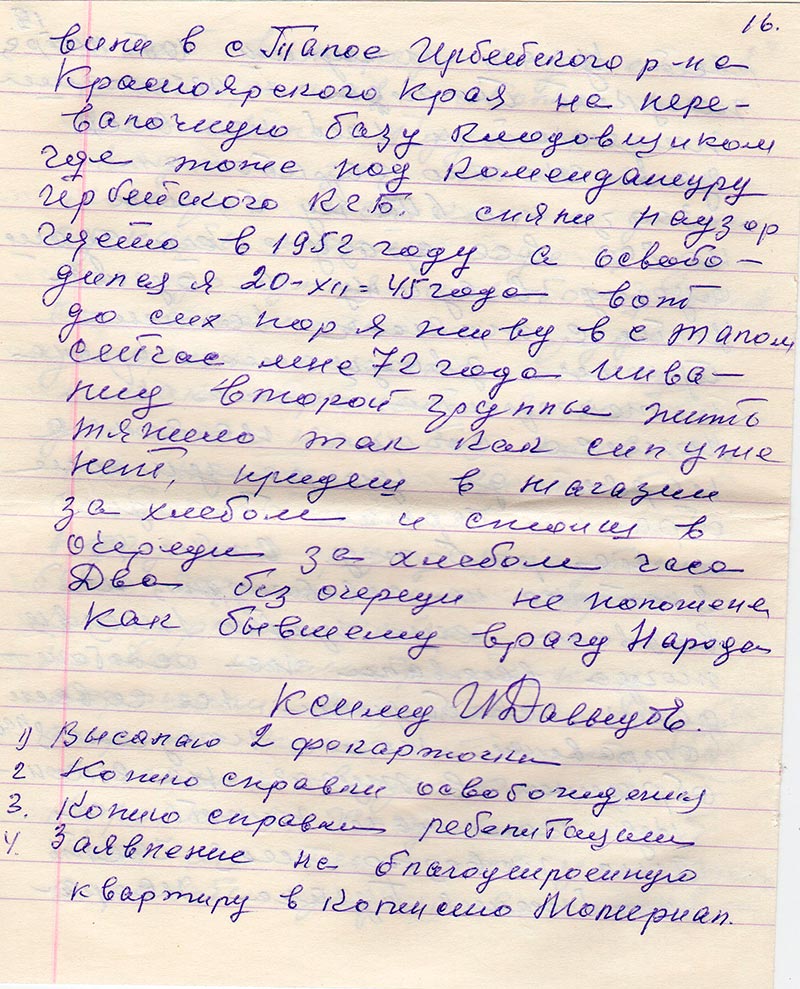 16.
вини в с Талое Ирбейского р-на
Красноярского Края на пере-
валочную базу кладовщиком
где тоже под Комендатуру
ирбейского КГБ. сняли наузор
гдето в 1952 году а освобо-
дился я 20-XII=45 года вот
до сих пор я живу в с Талом
сейчас мне 72 года инва-
лид второй группы жить
тяжело так как сил уже
нет, придеш в магазин
за хлебом и стоиш в
очереди за хлебом часа
Два без очереди не положена
как бывшему врагу Народа
К сиему И Давыдов.
1) Высалаю 2 фокарточки
2 Копию справки освобождения
3. Копию справки ребелитации
4. Заявление на благоустроенную
квартиру в Кописию Мотериал.